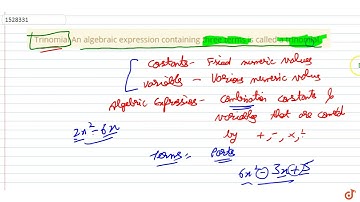 1528331
Trinomial An algebraic expression containing three terms is called a trinomial.
Costants - Fixed numeric values
Variables - Various numeric valus
Algebric Expressions - Combination constants &
variables that are conctd
by +, -, ×, ÷
2x² - 6x
Terms = Parts
6x² - 3x + 5